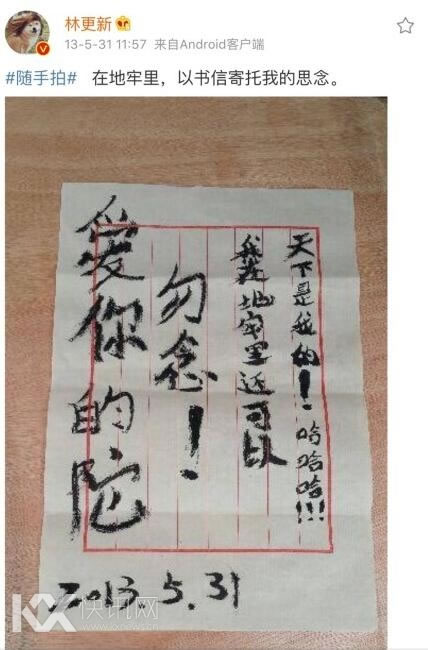 林更新
13-5-31 11:57 来自Android客户端
#随手拍# 在地牢里，以书信寄托我的思念。
天下是我的！哈哈哈!!!
我在地牢里还可以
勿念！
爱你的陀
2013.5.31
KX快讯网